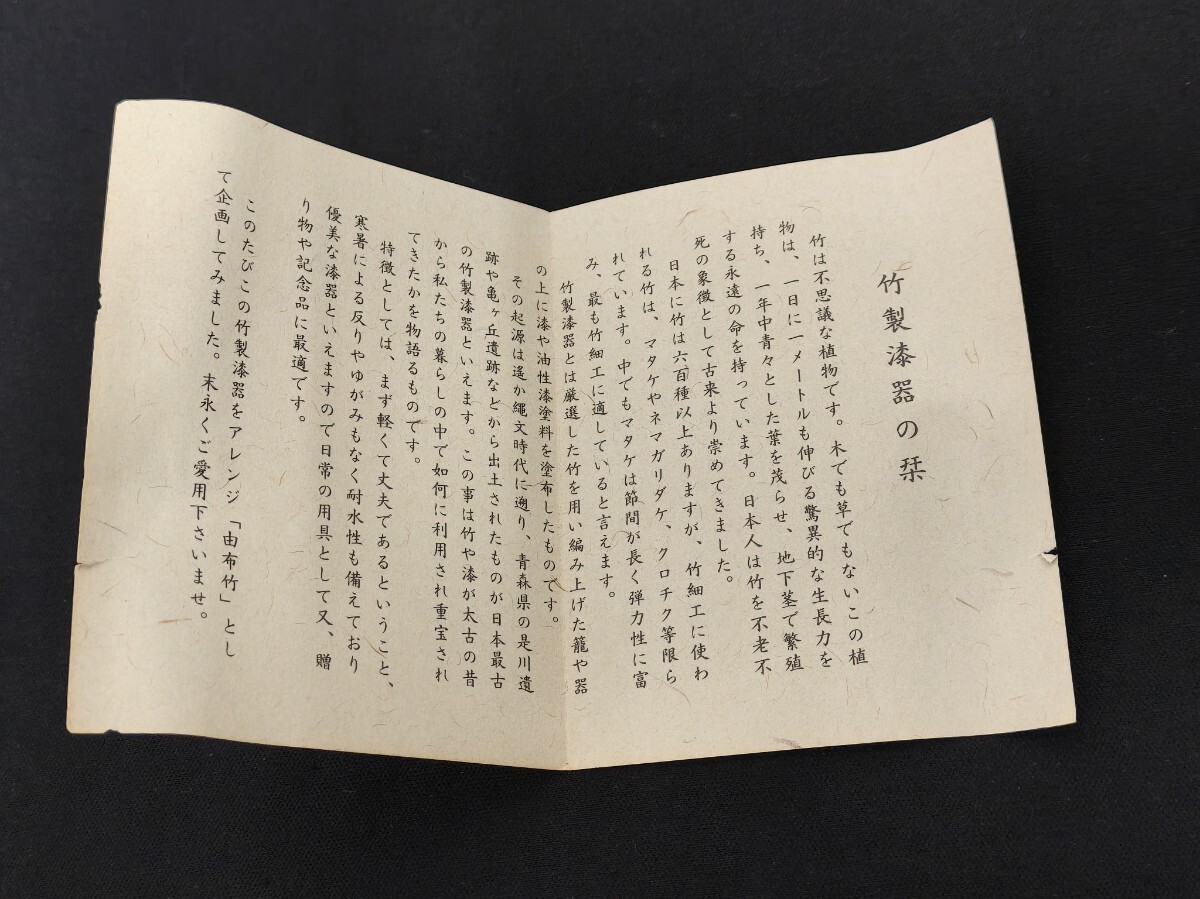 竹製漆器の栞
竹は不思議な植物です。木でも草でもないこの植
物は、一日に一メートルも伸びる驚異的な生長力を
持ち、一年中青々とした葉を茂らせ、地下茎で繁殖
する永遠の命を持っています。日本人は竹を不老不
死の象徴として古来より崇めてきました。
日本に竹は六百種以上ありますが、竹細工に使わ
れる竹は、マタケやネマガリダケ、クロチク等限ら
れています。中でもマタケは節間が長く弾力性に富
み、最も竹細工に適していると言えます。
竹製漆器とは厳選した竹を用い編み上げた籠や器
の上に漆や油性漆塗料を塗布したものです。
その起源は遙か縄文時代に遡り、青森県の是川遺
跡や亀ヶ丘遺跡などから出土されたものが日本最古
の竹製漆器といえます。この事は竹や漆が太古の昔
から私たちの暮らしの中で如何に利用され重宝され
てきたかを物語るものです。
特徴としては、まず軽くて丈夫であるということ、
寒暑による反りやゆがみもなく耐水性も備えており
優美な漆器といえますので日常の用具として又、贈
り物や記念品に最適です。
このたびこの竹製漆器をアレンジ「由布竹」とし
て企画してみました。末永くご愛用下さいませ。